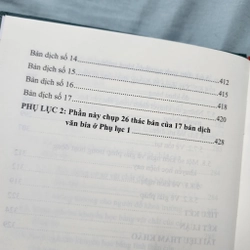 Bản dịch số 14
412
Bản dịch số 15
415
Bản dịch số 16
418
Bản dịch số 17
420
PHỤ LỤC 2: Phần này chụp 26 thác bản của 17 bản dịch
văn bia ở Phụ lục 1
428